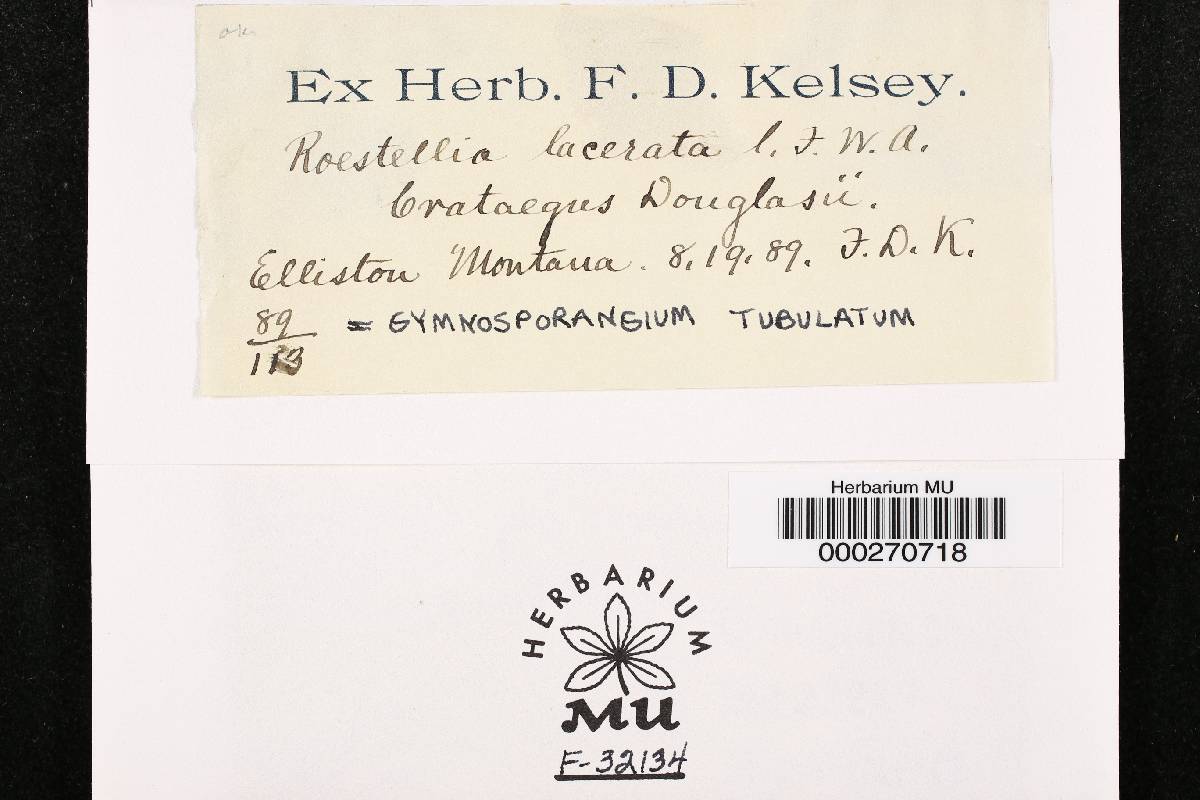 ok
Ex Herb. F. D. Kelsey.
Roestellia lacerata l. F. W. A.
Crataegus Douglasii.
Elliston Montana. 8.19.89. F. D. K.
89
113
= GYMNOSPORANGIUM TUBULATUM
Herbarium MU
000270718
HERBARIUM
MU
F-32134